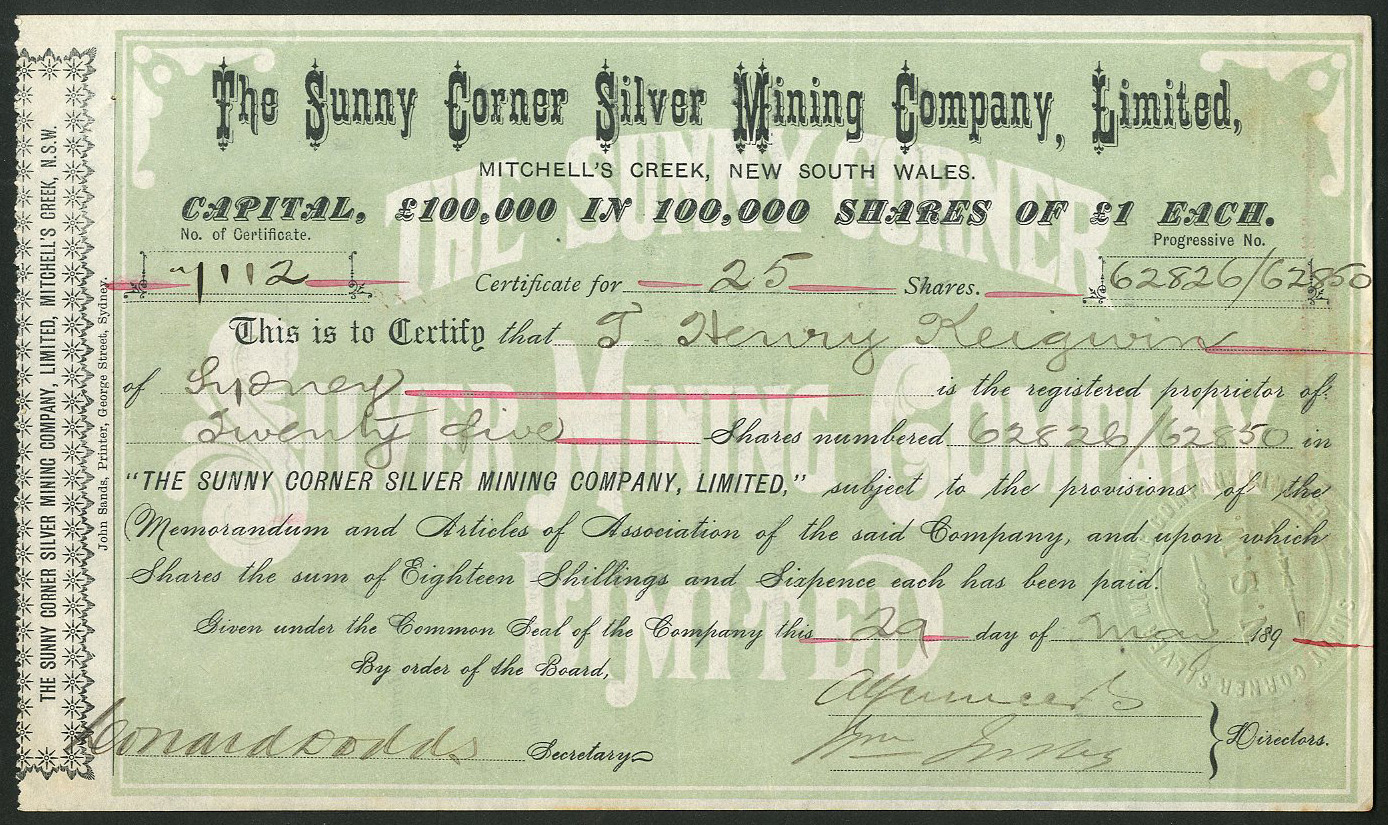 The Sunny Corner Silver Mining Company, Limited,
MITCHELL'S CREEK, NEW SOUTH WALES.
CAPITAL, £100,000 IN 100,000 SHARES OF £1 EACH.
No. of Certificate. Progressive No.
1112 Certificate for 25 Shares. 62826/62850
This is to Certify that T. Henry Keigwin
of Sydney is the registered proprietor of
Twenty five Shares numbered 62826/62850 in
"THE SUNNY CORNER SILVER MINING COMPANY, LIMITED," subject to the provisions of the
Memorandum and Articles of Association of the said Company, and upon which
Shares the sum of Eighteen Shillings and Sixpence each has been paid.
Given under the Common Seal of the Company this 29 day of May 189
By order of the Board,
Leonard Dodds Secretary
Directors.
THE SUNNY CORNER SILVER MINING COMPANY, LIMITED, MITCHELL'S CREEK, N.S.W.
John Sands, Printer, George Street, Sydney.
THE SUNNY CORNER
SILVER MINING COMPANY
LIMITED